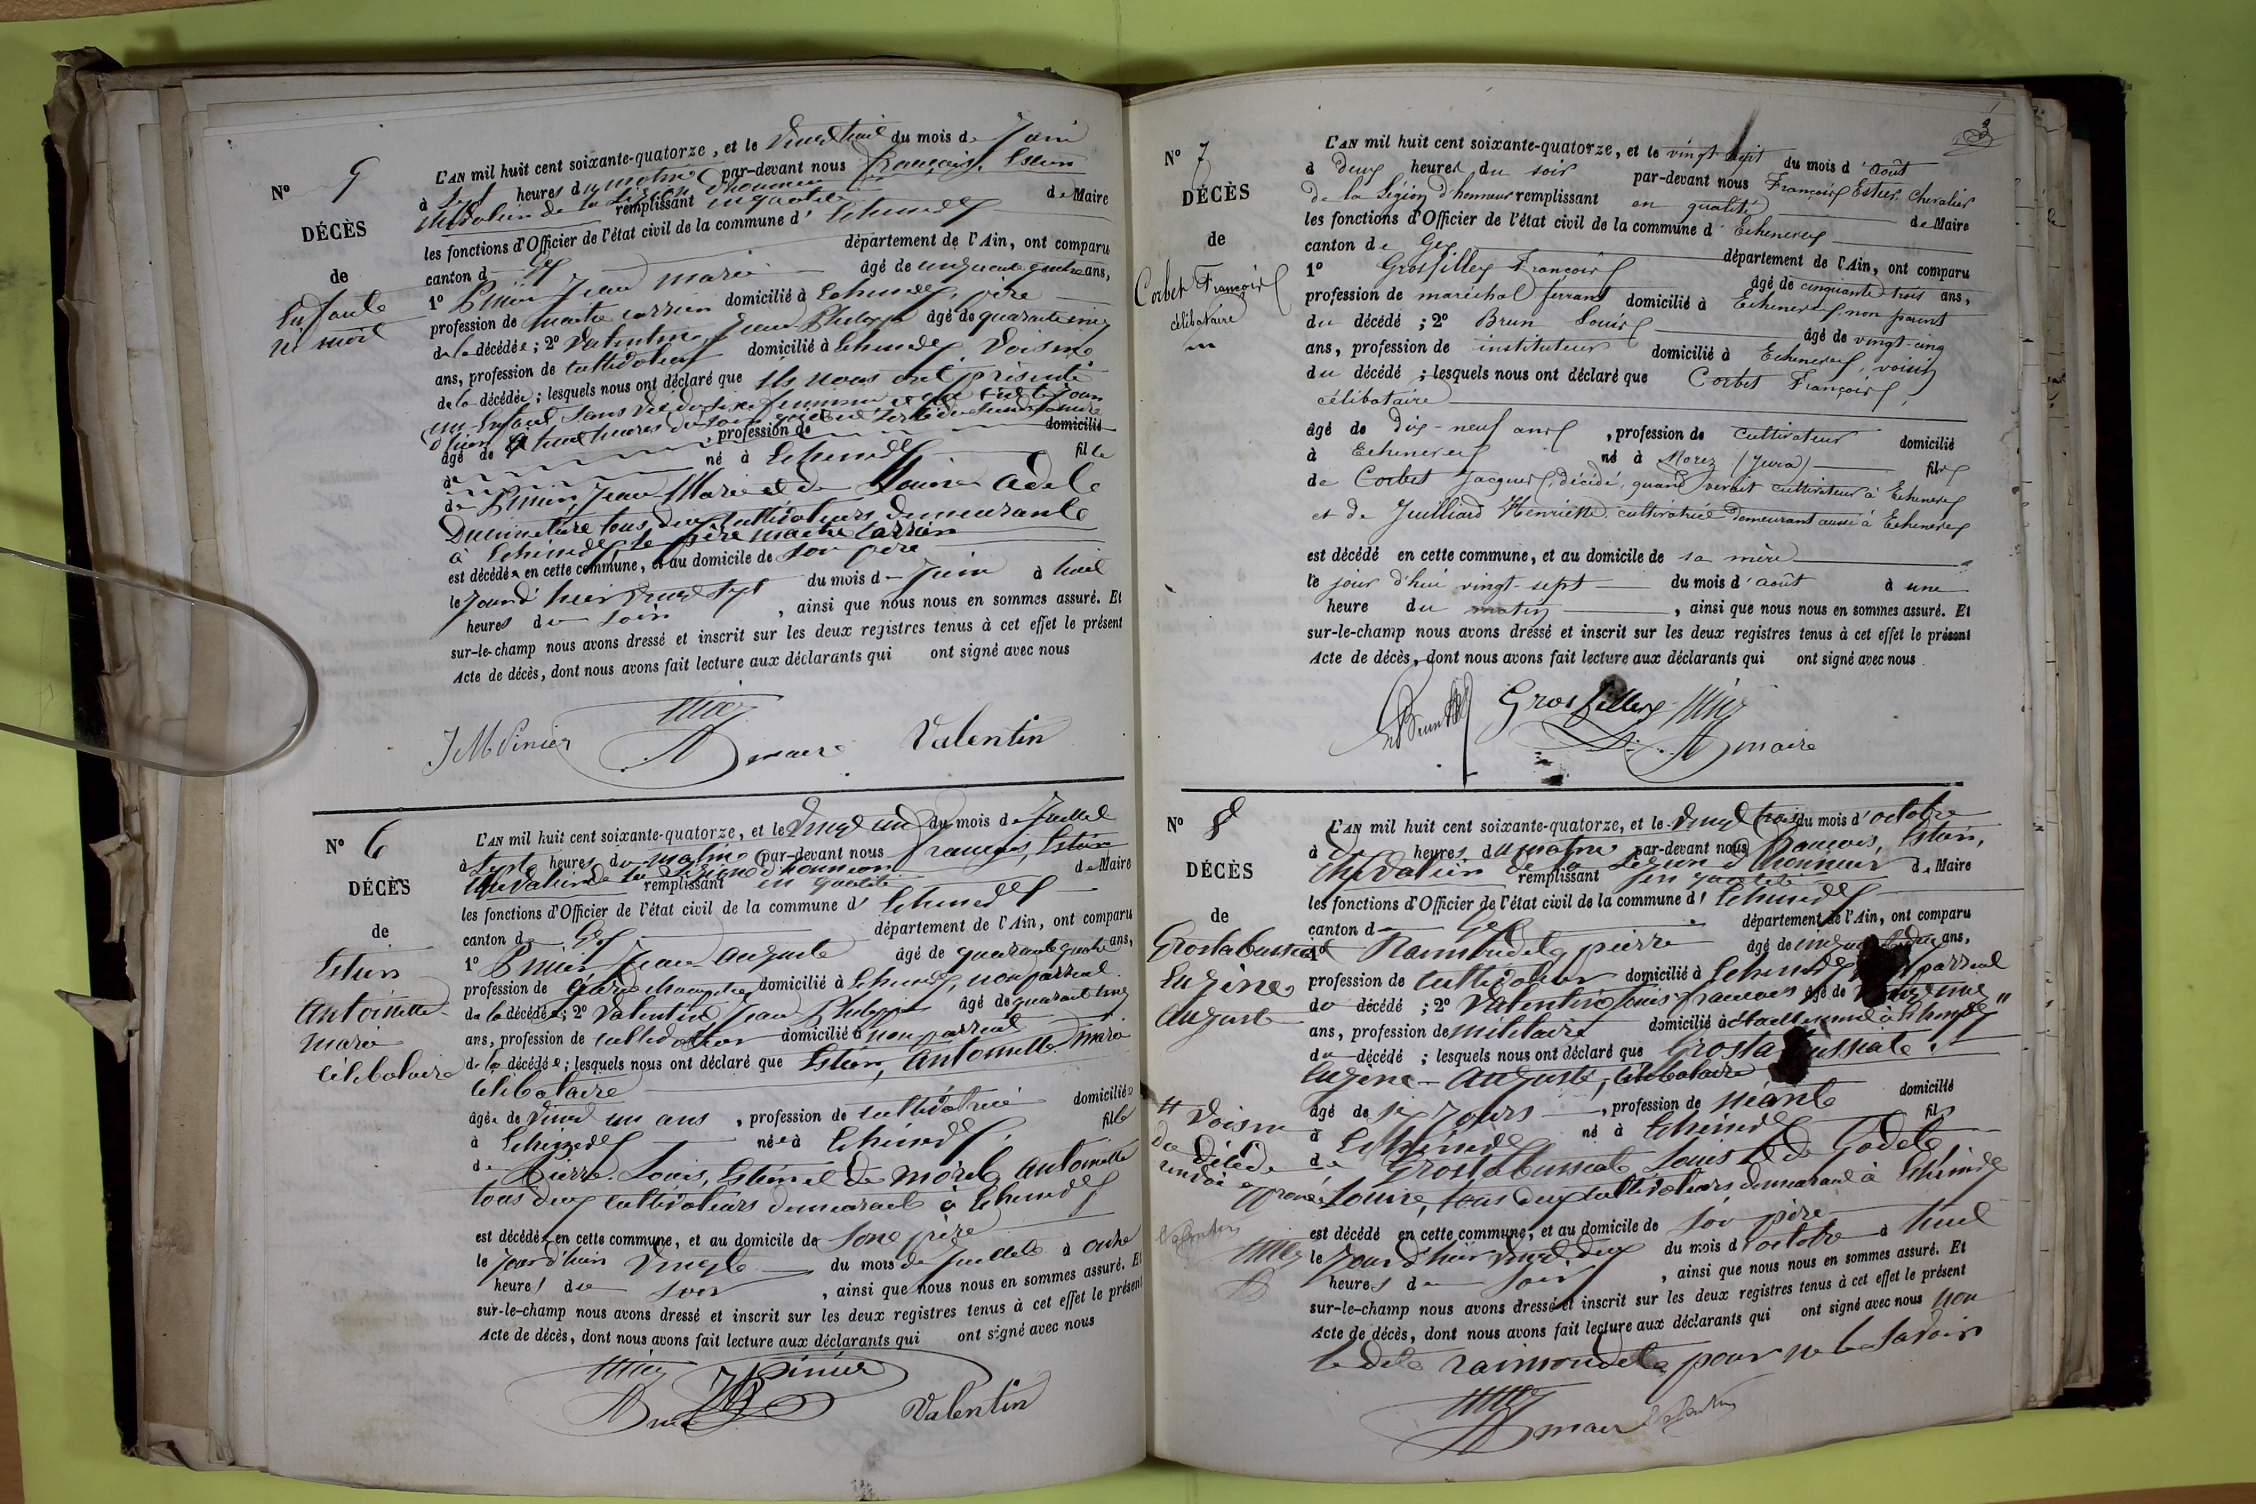 N° 5
DÉCÈS
de
Enfant
L'AN mil huit cent soixante-quatorze, et le vingt huit du mois de Juin
à heures du matin par-devant nous François, Estier
de la Légion d'honneur remplissant en qualité de Maire
les fonctions d'Officier de l'état civil de la commune d' Echenevex
canton de Gex département de l'Ain, ont comparu
1° Pinier Jean Marie âgé de cinquante quatre ans,
profession de domicilié à Echenevex, père
de la décédée; 2° Valentin Jean Philippe âgé de quarante cinq
ans, profession de cultivateur domicilié à Echenevex, voisin
de la décédée; lesquels nous ont déclaré que ils nous ont présenté
un Enfant sans vie du sexe féminin
d'hier à huit heures du soir
âgé de , profession de domicilié
à né à Echenevex fille
de Pinier, Jean Marie et de Louise Adèle
tous deux cultivateurs demeurant
à Echenevex, le père
est décédée en cette commune, et au domicile de son père
le jour d'hier vingt sept du mois de Juin à huit
heures du soir , ainsi que nous nous en sommes assuré. Et
sur-le-champ nous avons dressé et inscrit sur les deux registres tenus à cet effet le présent
Acte de décès, dont nous avons fait lecture aux déclarants qui ont signé avec nous
JM Pinier maire Valentin
N° 6
DÉCÈS
de
Estier
Antoinette
Marie
célibataire
L'AN mil huit cent soixante-quatorze, et le vingt un du mois de Juillet
à sept heures du matin par-devant nous François, Estier
Chevalier de la Légion d'honneur remplissant en qualité de Maire
les fonctions d'Officier de l'état civil de la commune d' Echenevex
canton de Gex département de l'Ain, ont comparu
1° Pinier Jean Auguste âgé de quarante quatre ans,
profession de garde champêtre domicilié à Echenevex, non parent
de la décédée; 2° Valentin Jean Philippe âgé de quarante cinq
ans, profession de cultivateur domicilié à non parent
de la décédée; lesquels nous ont déclaré que Estier, Antoinette Marie
célibataire
âgée de vingt un ans , profession de cultivatrice domiciliée
à Echenevex née à Echenevex, fille
de Pierre Louis, Estier et de Morel Antoinette
tous deux cultivateurs demeurant à Echenevex
est décédée en cette commune, et au domicile de son père
le jour d'hier vingt du mois de Juillet à onze
heures du soir , ainsi que nous nous en sommes assuré. Et
sur-le-champ nous avons dressé et inscrit sur les deux registres tenus à cet effet le présent
Acte de décès, dont nous avons fait lecture aux déclarants qui ont signé avec nous
Pinier
Valentin
3
N° 7
DÉCÈS
de
Corbet François
célibataire
L'AN mil huit cent soixante-quatorze, et le vingt sept du mois d'août
à deux heures du soir par-devant nous François Estier Chevalier
de la Légion d'honneur remplissant en qualité de Maire
les fonctions d'Officier de l'état civil de la commune d' Echenevex
canton de Gex département de l'Ain, ont comparu
1° Grosfilley François âgé de cinquante trois ans,
profession de maréchal ferrant domicilié à Echenevex non parent
du décédé; 2° Brun Louis âgé de vingt-cinq
ans, profession de instituteur domicilié à Echenevex, voisin
du décédé; lesquels nous ont déclaré que Corbet François,
célibataire
âgé de dix-neuf ans , profession de cultivateur domicilié
à Echenevex né à Morez (Jura) fils
de Corbet Jacques, décédé, quand vivait cultivateur à Echenevex
et de Juilliard Henriette cultivatrice demeurant aussi à Echenevex
est décédé en cette commune, et au domicile de sa mère
le jour d'hui vingt-sept du mois d'août à une
heure du matin , ainsi que nous nous en sommes assuré. Et
sur-le-champ nous avons dressé et inscrit sur les deux registres tenus à cet effet le présent
Acte de décès, dont nous avons fait lecture aux déclarants qui ont signé avec nous
Brun Grosfilley
maire
N° 8
DÉCÈS
de
Grostabussiat
Eugène
Auguste
L'AN mil huit cent soixante-quatorze, et le vingt trois du mois d'octobre
à heures du matin par-devant nous François, Estier,
Chevalier de la Légion d'honneur remplissant en qualité de Maire
les fonctions d'Officier de l'état civil de la commune d' Echenevex
canton de Gex département de l'Ain, ont comparu
1° pierre âgé de ans,
profession de cultivateur domicilié à Echenevex parent
du décédé; 2° Valentin Louis François âgé de
ans, profession de militaire domicilié à actuellement à Echenevex "
du décédé; lesquels nous ont déclaré que Grostabussiat
Eugène Auguste, célibataire
âgé de six jours , profession de néant domicilié
à Echenevex né à Echenevex fils
de Grostabussiat Louis et de Godet
Louise, tous deux cultivateurs demeurant à Echenevex
" Voisin
du décédé
renvoi approuvé
Valentin
est décédé en cette commune, et au domicile de son père
le jour d'hier vingt deux du mois d'octobre à huit
heures du soir , ainsi que nous nous en sommes assuré. Et
sur-le-champ nous avons dressé et inscrit sur les deux registres tenus à cet effet le présent
Acte de décès, dont nous avons fait lecture aux déclarants qui ont signé avec nous non
le dit raimondet pour ne le savoir
maire Valentin